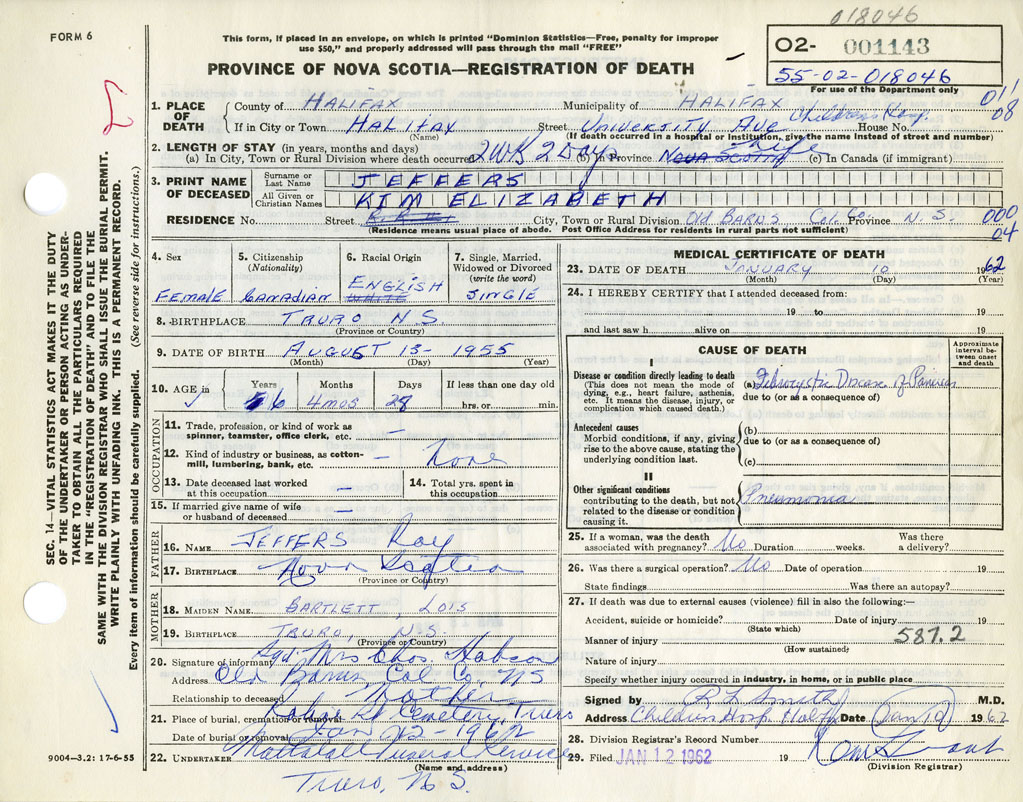 018046
FORM 6
This form, if placed in an envelope, on which is printed "Dominion Statistics—Free, penalty for improper
use $50," and properly addressed will pass through the mail "FREE"
PROVINCE OF NOVA SCOTIA—REGISTRATION OF DEATH
02- 001143
55-02-018046
For use of the Department only
011
08
1. PLACE OF DEATH { County of HALIFAX Municipality of HALIFAX
If in City or Town HALIFAX (Name) Street University Ave Childrens Hosp. House No.
(If death occurred in hospital or institution, give the name instead of street and number)
2. LENGTH OF STAY (in years, months and days)
(a) In City, Town or Rural Division where death occurred 2 WK 2 Days (b) In Province NOVA SCOTIA Life (c) In Canada (if immigrant)
3. PRINT NAME OF DECEASED { Surname or Last Name JEFFERS
All Given or Christian Names KIM ELIZABETH
RESIDENCE No. Street City, Town or Rural Division Old BARNS Col. Co. Province N. S. 000
04
(Residence means usual place of abode. Post Office Address for residents in rural parts not sufficient)
4. Sex FEMALE
5. Citizenship (Nationality) CANADIAN
6. Racial Origin ENGLISH WHITE
7. Single, Married, Widowed or Divorced (write the word) SINGLE
8. BIRTHPLACE TRURO N.S.
(Province or Country)
9. DATE OF BIRTH AUGUST 13- 1955
(Month) (Day) (Year)
10. AGE in Years 6 Months 4 mos Days 28 If less than one day old hrs. or min.
OCCUPATION
11. Trade, profession, or kind of work as spinner, teamster, office clerk, etc. —
12. Kind of industry or business, as cotton-mill, lumbering, bank, etc. — None
13. Date deceased last worked at this occupation —
14. Total yrs. spent in this occupation
15. If married give name of wife or husband of deceased —
FATHER
16. NAME JEFFERS Roy
17. BIRTHPLACE Nova Scotia
(Province or Country)
MOTHER
18. MAIDEN NAME BARTLETT, LOIS
19. BIRTHPLACE TRURO, N.S.
(Province or Country)
20. Signature of informant Sgd. Mrs Chas. Hobson
Address Old Barns, Col. Co., NS
Relationship to deceased Mother
21. Place of burial, cremation or removal Cemetery, Truro
Date of burial or removal Jan 12-1962
22. UNDERTAKER Mattatall Funeral Service
(Name and address)
Truro, N S.
9004—3.2: 17-6-55
MEDICAL CERTIFICATE OF DEATH
23. DATE OF DEATH JANUARY 10 1962
(Month) (Day) (Year)
24. I HEREBY CERTIFY that I attended deceased from:
19 to 19
and last saw h alive on 19
CAUSE OF DEATH
Approximate interval between onset and death
I
Disease or condition directly leading to death
(This does not mean the mode of dying, e.g., heart failure, asthenia, etc. It means the disease, injury, or complication which caused death.)
(a) Fibrocystic Disease of Pancreas
due to (or as a consequence of)
Antecedent causes
Morbid conditions, if any, giving rise to the above cause, stating the underlying condition last.
(b)
due to (or as a consequence of)
(c)
II
Other significant conditions
contributing to the death, but not related to the disease or condition causing it.
Pneumonia
25. If a woman, was the death associated with pregnancy? No Duration weeks. Was there a delivery?
26. Was there a surgical operation? No Date of operation 19
State findings Was there an autopsy?
27. If death was due to external causes (violence) fill in also the following:—
Accident, suicide or homicide? Date of injury 19
(State which)
Manner of injury 587.2
(How sustained)
Nature of injury
Specify whether injury occurred in industry, in home, or in public place
Signed by R L Smith M.D.
Address Childrens Hosp Halifax Date Jan 10 1962
28. Division Registrar's Record Number
29. Filed JAN 12 1962 19
(Division Registrar)
SEC. 14—VITAL STATISTICS ACT MAKES IT THE DUTY
OF THE UNDERTAKER OR PERSON ACTING AS UNDER-
TAKER TO OBTAIN ALL THE PARTICULARS REQUIRED
IN THE "REGISTRATION OF DEATH" AND TO FILE THE
SAME WITH THE DIVISION REGISTRAR WHO SHALL ISSUE THE BURIAL PERMIT.
WRITE PLAINLY WITH UNFADING INK. THIS IS A PERMANENT RECORD.
Every item of information should be carefully supplied. (See reverse side for instructions.)